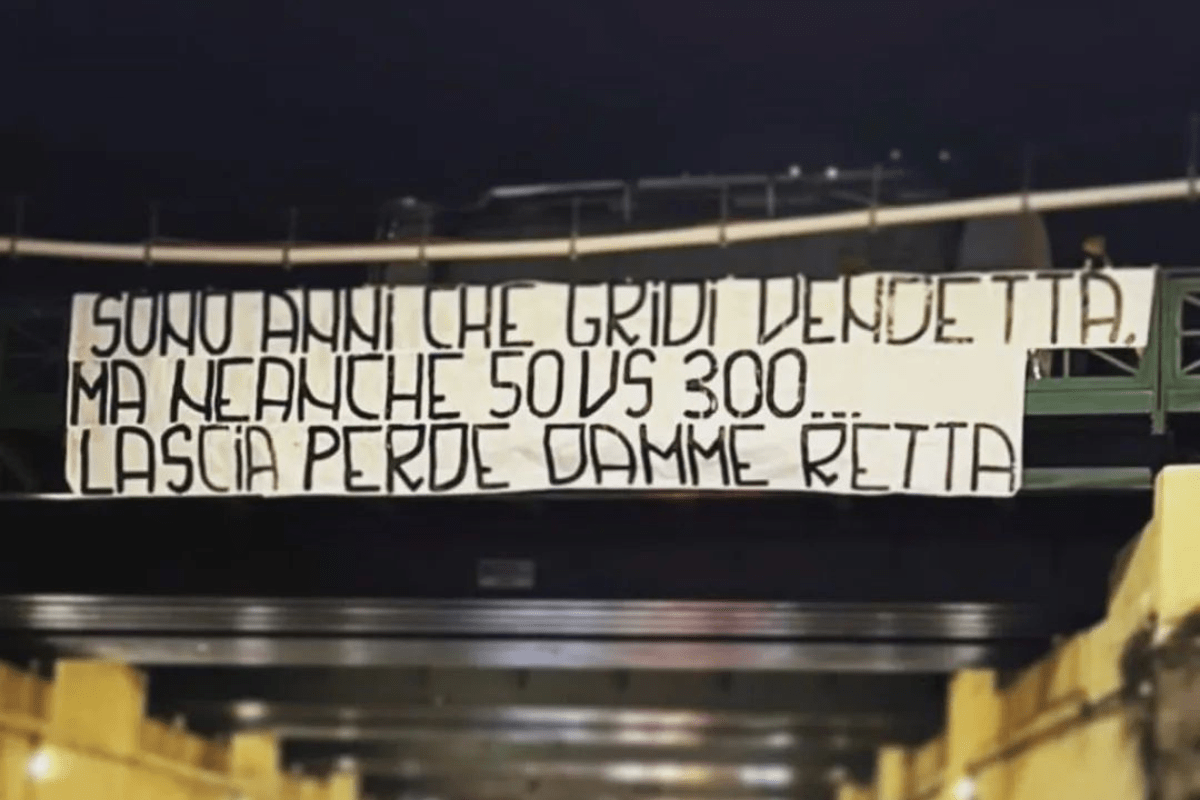 SONO ANNI CHE GRIDI VENDETTA.
MA NEANCHE 50 VS 300...
LASCIA PERDE DAMME RETTA